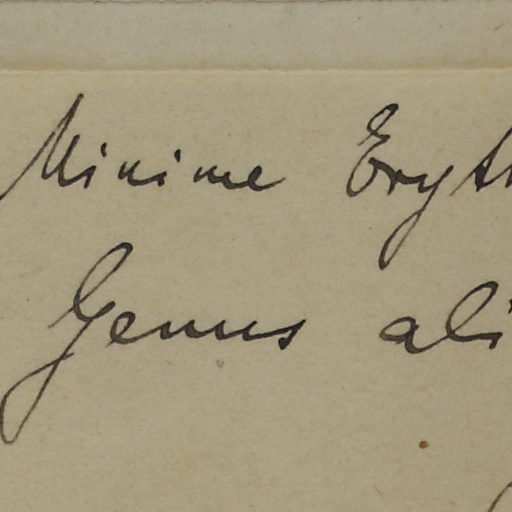 Minime Eryth
Genus ali